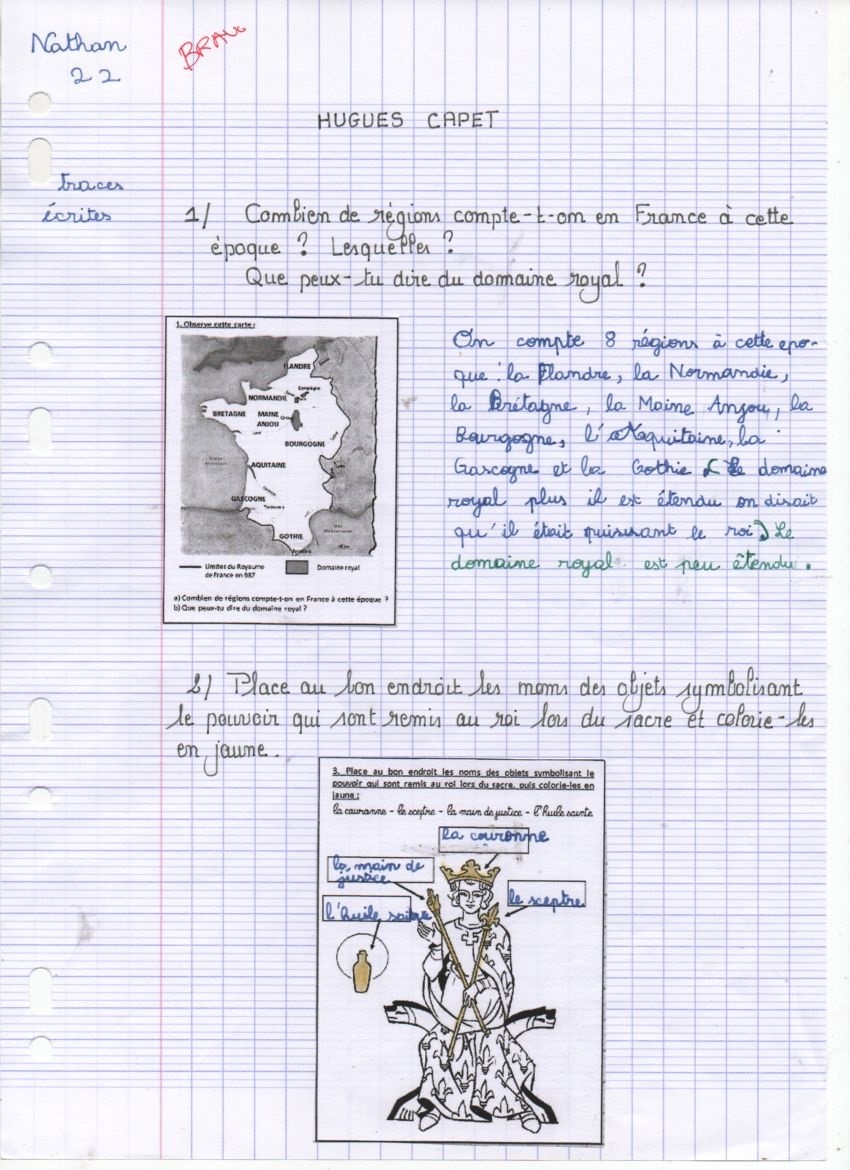 Nathan
22
BRAVO
HUGUES CAPET
traces
écrites
1/ Combien de régions compte-t-on en France à cette
époque ? Lesquelles ?
Que peux-tu dire du domaine royal ?
1. Observe cette carte :
FLANDRE
Compiègne
NORMANDIE
BRETAGNE
MAINE
ANJOU
BOURGOGNE
AQUITAINE
GASCOGNE
Toulouse
GOTHIE
Limites du Royaume
de France en 987
Domaine royal
a) Combien de régions compte-t-on en France à cette époque ?
b) Que peux-tu dire du domaine royal ?
On compte 8 régions à cette epo-
que : la Flandre, la Normandie,
la Brétagne, la Maine Anjou, la
Bourgogne, l'Aquitaine, la
Gascogne et la Gothie ( Le domaine
royal plus il est étendu on disait
qu'il était puissant le roi ) Le
domaine royal est peu êtendu .
2/ Place au bon endroit les noms des objets symbolisant
le pouvoir qui sont remis au roi lors du sacre et colorie-les
en jaune.
3. Place au bon endroit les noms des objets symbolisant le
pouvoir qui sont remis au roi lors du sacre, puis colorie-les en
jaune :
la couronne - le sceptre - la main de justice - l'huile sainte
la couronne
la main de
justice
le sceptre
l'huile sainte